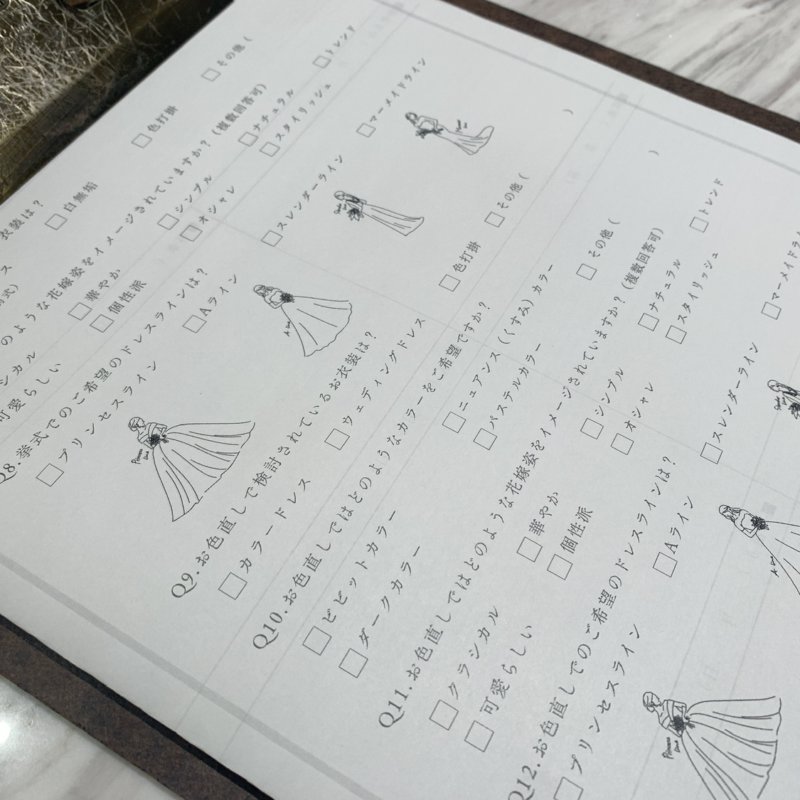 衣装は？
□白無垢 □色打掛 □その他（
のような花嫁姿をイメージされていますか？（複数回答可）
シカル □華やか □シンプル □ナチュラル □トレンド
可愛らしい □個性派 □オシャレ □スタイリッシュ
Q8.挙式でのご希望のドレスラインは？
□プリンセスライン □Aライン □スレンダーライン □マーメイドライン
Q9.お色直しで検討されているお衣装は？
□カラードレス □ウェディングドレス □色打掛 □その他（ ）
Q10.お色直しではどのようなカラーをご希望ですか？
□ビビットカラー □ニュアンス（くすみ）カラー □その他（ ）
□ダークカラー □パステルカラー
Q11.お色直しではどのような花嫁姿をイメージされていますか？（複数回答可）
□クラシカル □華やか □シンプル □ナチュラル □トレンド
□可愛らしい □個性派 □オシャレ □スタイリッシュ
Q12.お色直しでのご希望のドレスラインは？
□プリンセスライン □Aライン □スレンダーライン □マーメイドラ